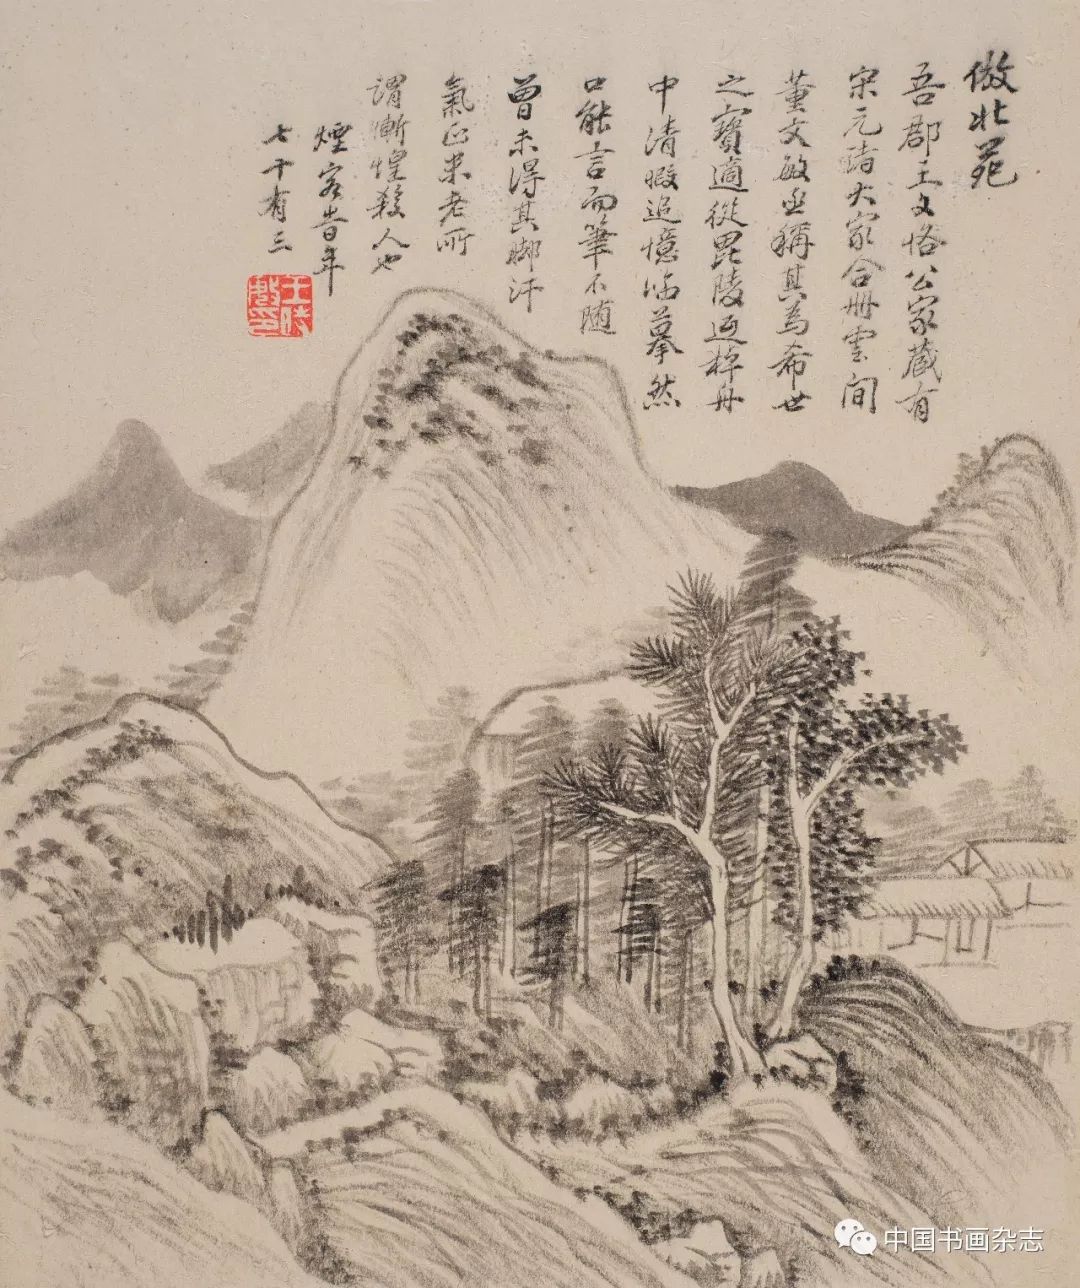 倣北苑
吾郡王文恪公家藏有
宋元諸大家合冊雲間
董文敏亟稱其為希世
之寶適從毘陵返棹舟
中清暇追憶臨摹然
口能言而筆不随
曾未得其脚汗
氣正米老所
謂慚惶殺人也
煙客時年
七十有三
王時敏印
中国书画杂志